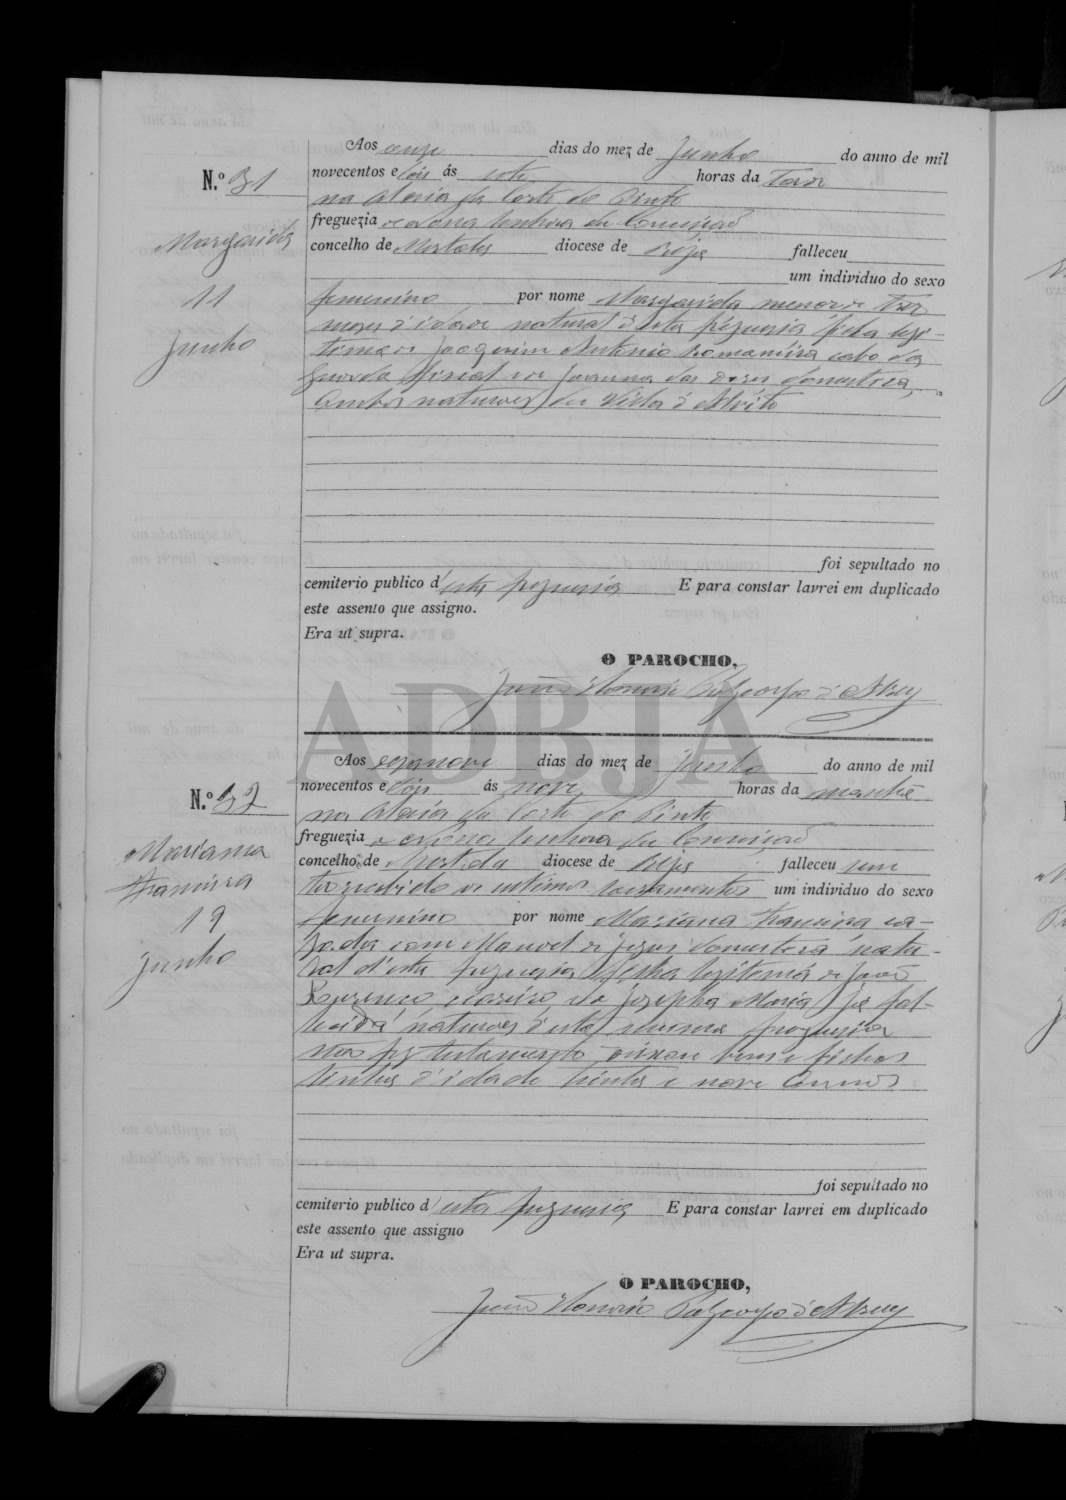 Aos onze dias do mez de Junho do anno de mil
N.º 31
novecentos e dois ás sete horas da Tarde
na Aldeia da Corte do Pinto
freguezia de Nossa Senhora da Conceição
Margarida
concelho de Mertola diocese de Béja falleceu
um individuo do sexo
11
femenino por nome Margarida menor de Tres
mezes d'idade natural d'esta freguesia filha legi-
Junho
tima de Joaquim Antonio cabo da
Guarda Fiscal e de Joanna das Dores domestica,
Ambos naturaes da Villa d'Alvito
foi sepultado no
cemiterio publico d'esta freguesia E para constar lavrei em duplicado
este assento que assigno.
Era ut supra.
O PAROCHO,
João d'Abreu
ADBJA
Aos dezanove dias do mez de Junho do anno de mil
N.º 32
novecentos e dois ás nove horas da manhã
na Aldeia da Corte do Pinto
freguezia de Nossa Senhora da Conceição
Marianna
concelho de Mertola diocese de Béja falleceu sem
Francisca
ter recebido os ultimos Sacramentos um individuo do sexo
19
femenino por nome Mariana Francisca ca-
Junho
zada com Manoel de Jezus domestica natu-
ral d'esta freguesia filha legitima de João
Lourenço e de Josepha Maria já fal-
lecida naturaes d'esta mesma freguezia
não fez testamento deixou bens e filhos
d'idade trinta e nove annos
foi sepultado no
cemiterio publico d'esta freguesia E para constar lavrei em duplicado
este assento que assigno
Era ut supra.
O PAROCHO,
João d'Abreu